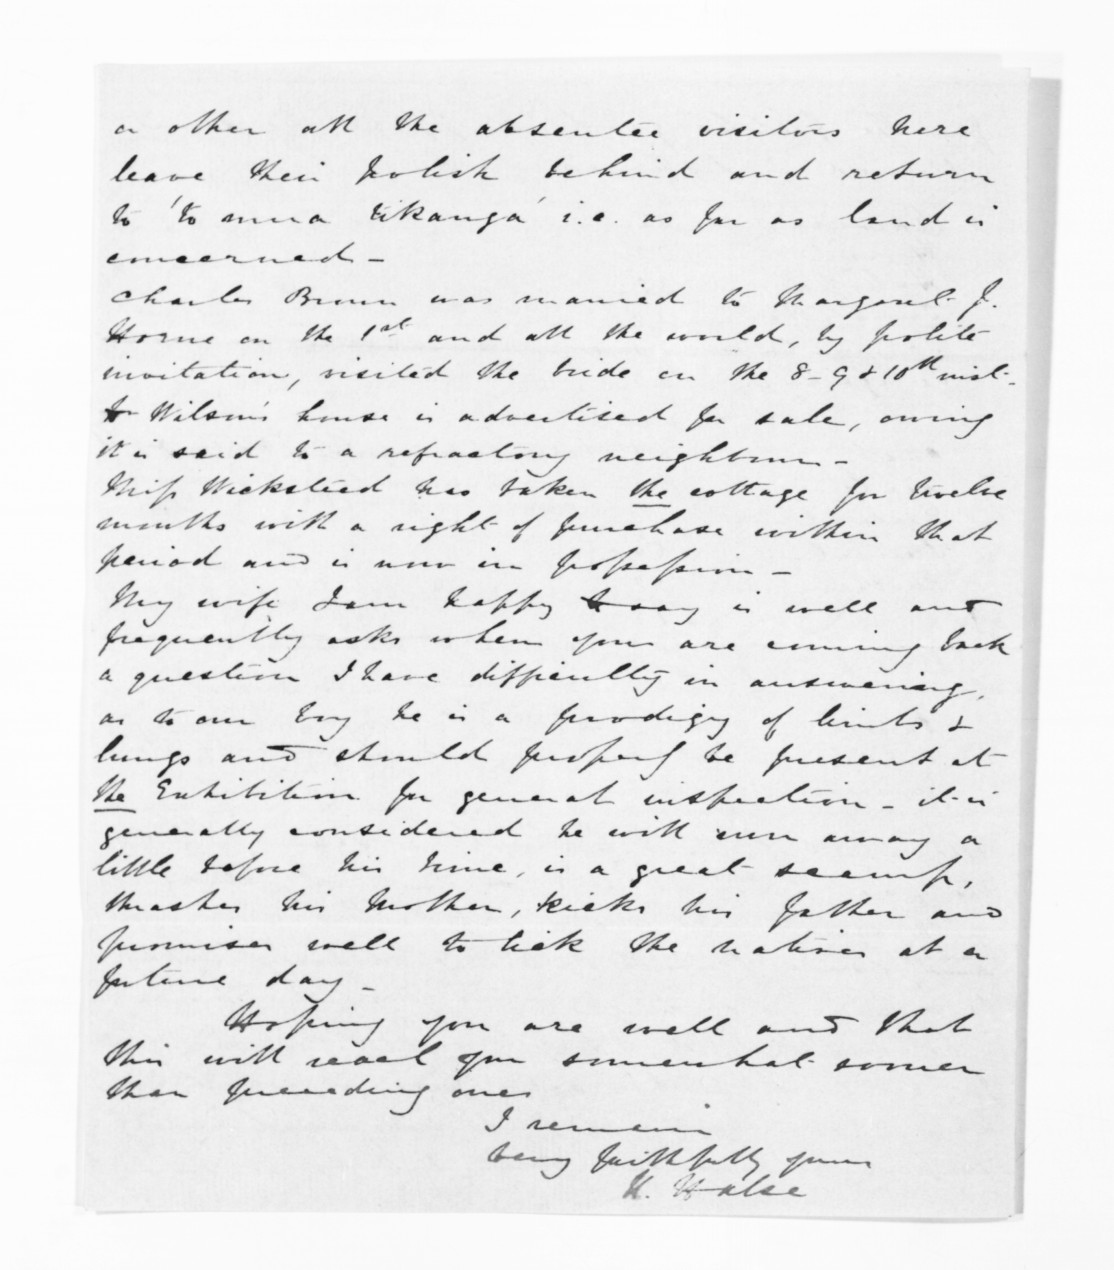 or other all the absentee visitors here
leave their polish behind and return
to 'to mua tikanga' i.e. as far as land is
concerned -
Charles Brown was married to Margaret J.
Horne on the 1st and all the world, by polite
invitation, visited the bride on the 8 - 9 & 10th inst -
Wilson's house is advertised for sale, owing
it is said to a refractory neighbour -
Miss Wicksteed has taken the cottage for twelve
months with a right of purchase within that
period and is now in possession -
My wife I am happy to say is well and
frequently asks when you are coming back
a question I have difficulty in answering,
as to our boy he is a prodigy of limbs &
lungs and should properly be present at
the Exhibition for general inspection - it is
generally considered he will run away a
little before his time, is a great scamp,
thrashes his Mother, kicks his father and
promises well to lick the natives at a
future day -
Hoping you are well and that
this will reach you somewhat sooner
than preceding ones
I remain
very faithfully yours
H. Halse